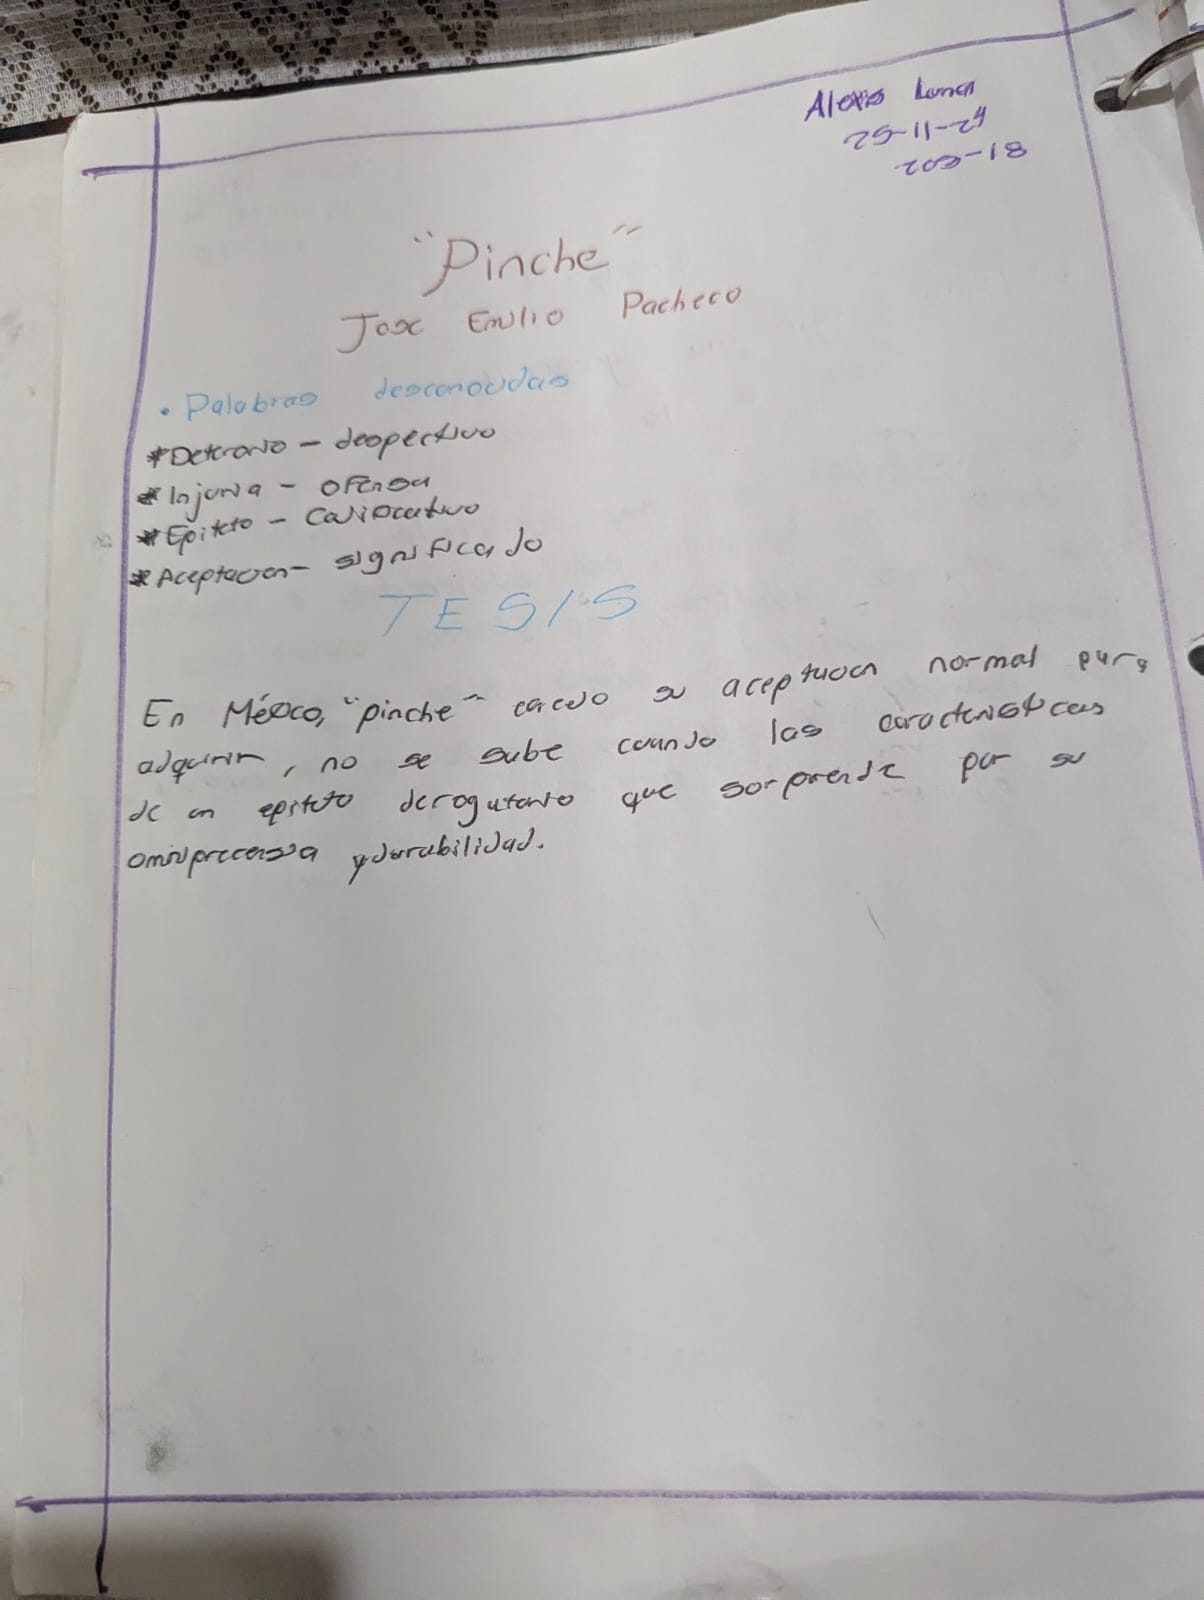 Alexis Luna
25-11-24
203-18
"Pinche"
Jose Emilio Pacheco
• Palabras desconocidas
*Deterorio - despectivo
*Injuria - ofensa
*Epiteto - Calificativo
*Aceptacion - significado
TESIS
En México, "pinche" su aceptacion normal para
adquirir, no se sabe cuando las caracteristicas
de un epiteto derogatorio que sorprende por su
omniprecensia y durabilidad.